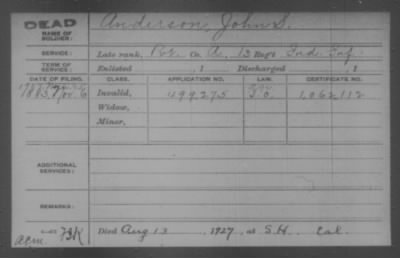 DEAD
NAME OF SOLDIER:
Anderson, John S.
SERVICE:
Late rank, Pvt. Co. A, 13 Reg't Ind. Inf.
TERM OF SERVICE:
Enlisted , 1 Discharged , 1
DATE OF FILING. CLASS. APPLICATION NO. LAW. CERTIFICATE NO.
1883, Nov. 6 Invalid, 499,275 1,062,112
Widow,
Minor,
ADDITIONAL SERVICES:
REMARKS:
Died Aug 13 , 1927, at S.H. Cal.